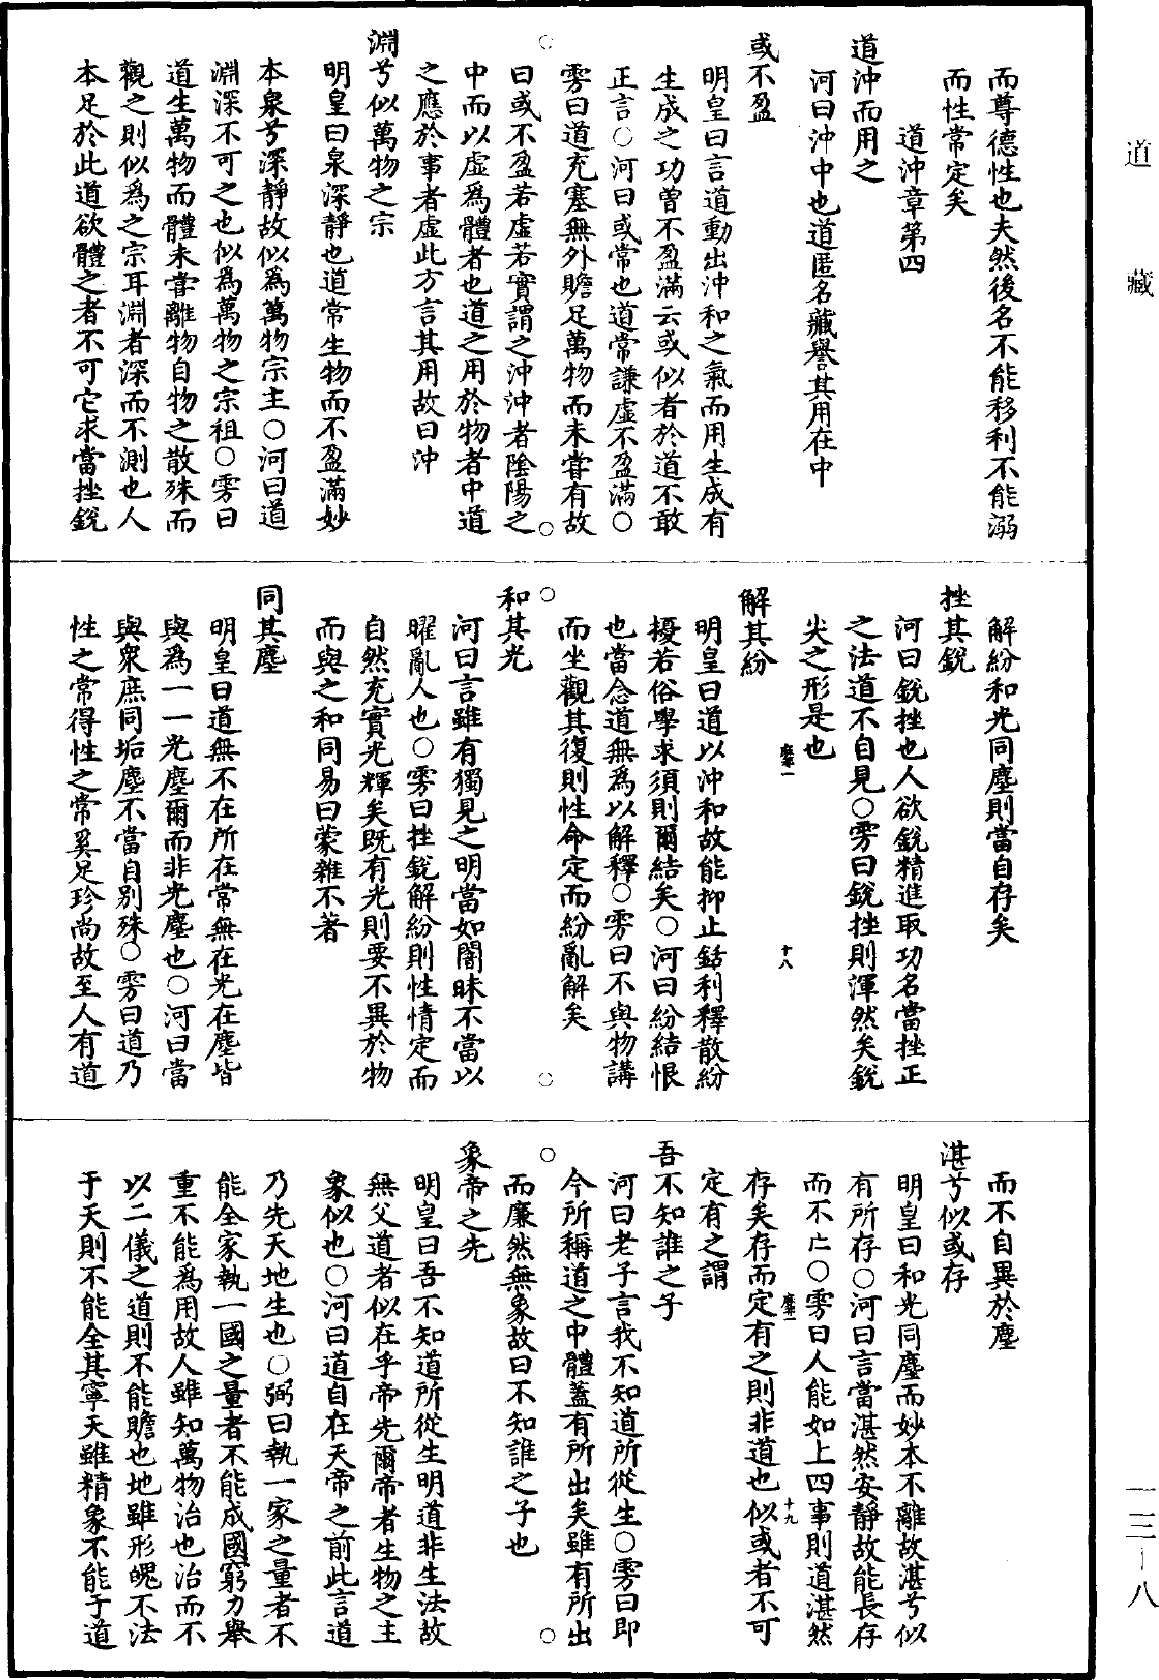 道藏
一三—八
而尊德性也夫然後名不能移利不能溺
而性常定矣
道沖章第四
道沖而用之
河曰沖中也道匿名藏譽其用在中
或不盈
明皇曰言道動出沖和之氣而用生成有
生成之功曾不盈滿云或似者於道不敢
正言○河曰或常也道常謙虛不盈滿○
雱曰道充塞無外贍足萬物而未嘗有故
曰或不盈若虛若實謂之沖沖者陰陽之
中而以虛為體者也道之用於物者中道
之應於事者虛此方言其用故曰沖
淵兮似萬物之宗
明皇曰泉深靜也道常生物而不盈滿妙
本泉兮深靜故似為萬物宗主○河曰道
淵深不可之也似為萬物之宗祖○雱曰
道生萬物而體未嘗離物自物之散殊而
觀之則似為之宗耳淵者深而不測也人
本足於此道欲體之者不可它求當挫銳
解紛和光同塵則當自存矣
挫其銳
河曰銳挫也人欲銳精進取功名當挫正
之法道不自見○雱曰銳挫則渾然矣銳
尖之形是也
十八
解其紛
明皇曰道以沖和故能抑止銛利釋散紛
擾若俗學求須則爾結矣○河曰紛結恨
也當念道無為以解釋○雱曰不與物講
而坐觀其復則性命定而紛亂解矣
和其光
河曰言雖有獨見之明當如闇昧不當以
曜亂人也○雱曰挫銳解紛則性情定而
自然充實光輝矣既有光則要不異於物
而與之和同易曰蒙雜不著
同其塵
明皇曰道無不在所在常無在光在塵皆
與為一一光塵爾而非光塵也○河曰當
與眾庶同垢塵不當自別殊○雱曰道乃
性之常得性之常奚足珍尚故至人有道
而不自異於塵
湛兮似或存
明皇曰和光同塵而妙本不離故湛兮似
有所存○河曰言當湛然安靜故能長存
而不亡○雱曰人能如上四事則道湛然
十九
存矣存而定有之則非道也似或者不可
定有之謂
吾不知誰之子
河曰老子言我不知道所從生○雱曰即
今所稱道之中體蓋有所出矣雖有所出
而廉然無象故曰不知誰之子也
象帝之先
明皇曰吾不知道所從生明道非生法故
無父道者似在乎帝先爾帝者生物之主
象似也○河曰道自在天帝之前此言道
乃先天地生也○弼曰執一家之量者不
能全家執一國之量者不能成國窮力舉
重不能為用故人雖知萬物治也治而不
以二儀之道則不能贍也地雖形魄不法
于天則不能全其寧天雖精象不能于道